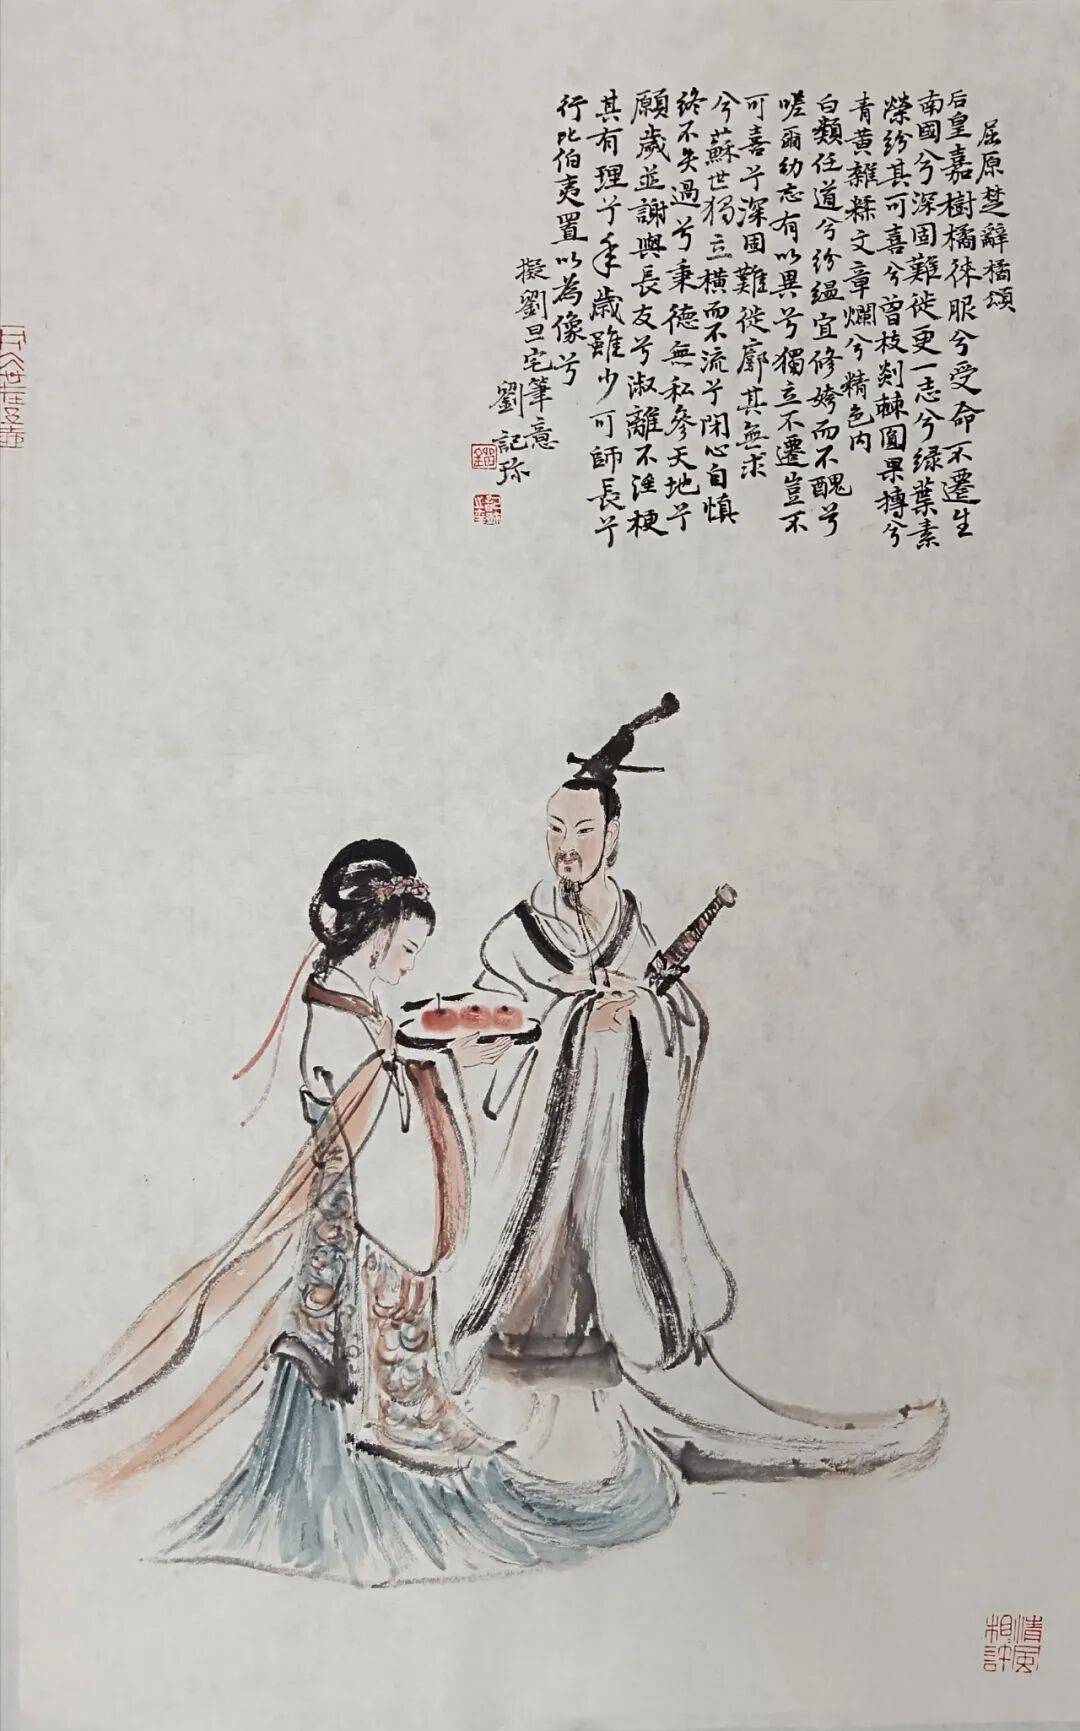 屈原楚辭橘頌
后皇嘉樹橘徠服兮受命不遷生
南國兮深固難徙更一志兮緑葉素
榮紛其可喜兮曾枝剡棘圓果摶兮
青黃雜糅文章爛兮精色內
白類任道兮紛緼宜修姱而不醜兮
嗟爾幼志有以異兮獨立不遷豈不
可喜兮深固難徙廓其無求
兮蘇世獨立橫而不流兮閉心自慎
終不失過兮秉德無私參天地兮
願歲並謝與長友兮淑離不淫梗
其有理兮年歲雖少可師長兮
行比伯夷置以為像兮
擬劉旦宅筆意
劉記珎
清風
相許